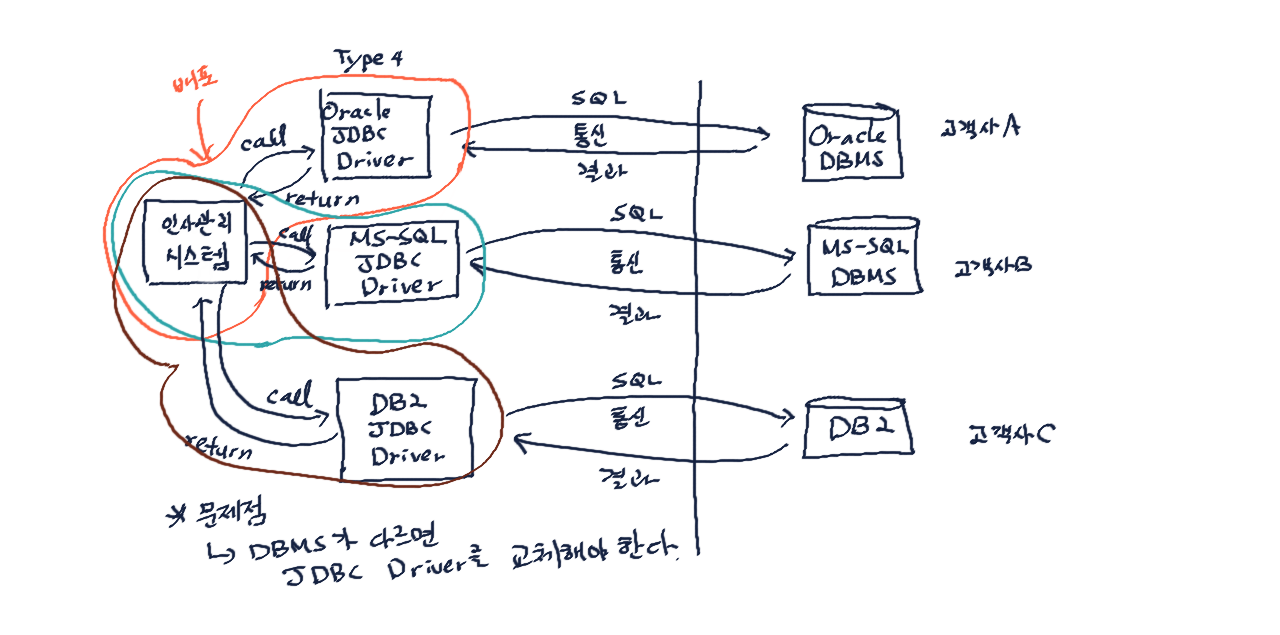 Type 4
배포
Oracle
JDBC
Driver
call
return
SQL
통신
결과
Oracle
DBMS
고객사 A
인사관리
시스템
call
return
MS-SQL
JDBC
Driver
SQL
통신
결과
MS-SQL
DBMS
고객사 B
call
return
DB2
JDBC
Driver
SQL
통신
결과
DB2
고객사 C
* 문제점
↳ DBMS가 다르면
JDBC Driver를 교체해야 한다.